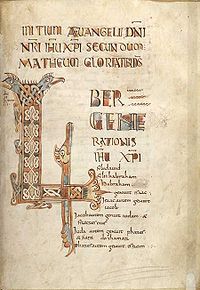 INITIUM ÆUANGELII DNI
NRI IHU XPI SECUNDUM
MATHEUM GLORIA TIBI DNS
LIBER
GENE
RATIONIS
IHU XPI
filii david
filii habraham
habraham
genuit isac
isac autem genuit
iacob
Iacob autem genuit iudam et
fratres eius
Iuda autem genuit phares
et zara de thamar
phares autem genuit esrom